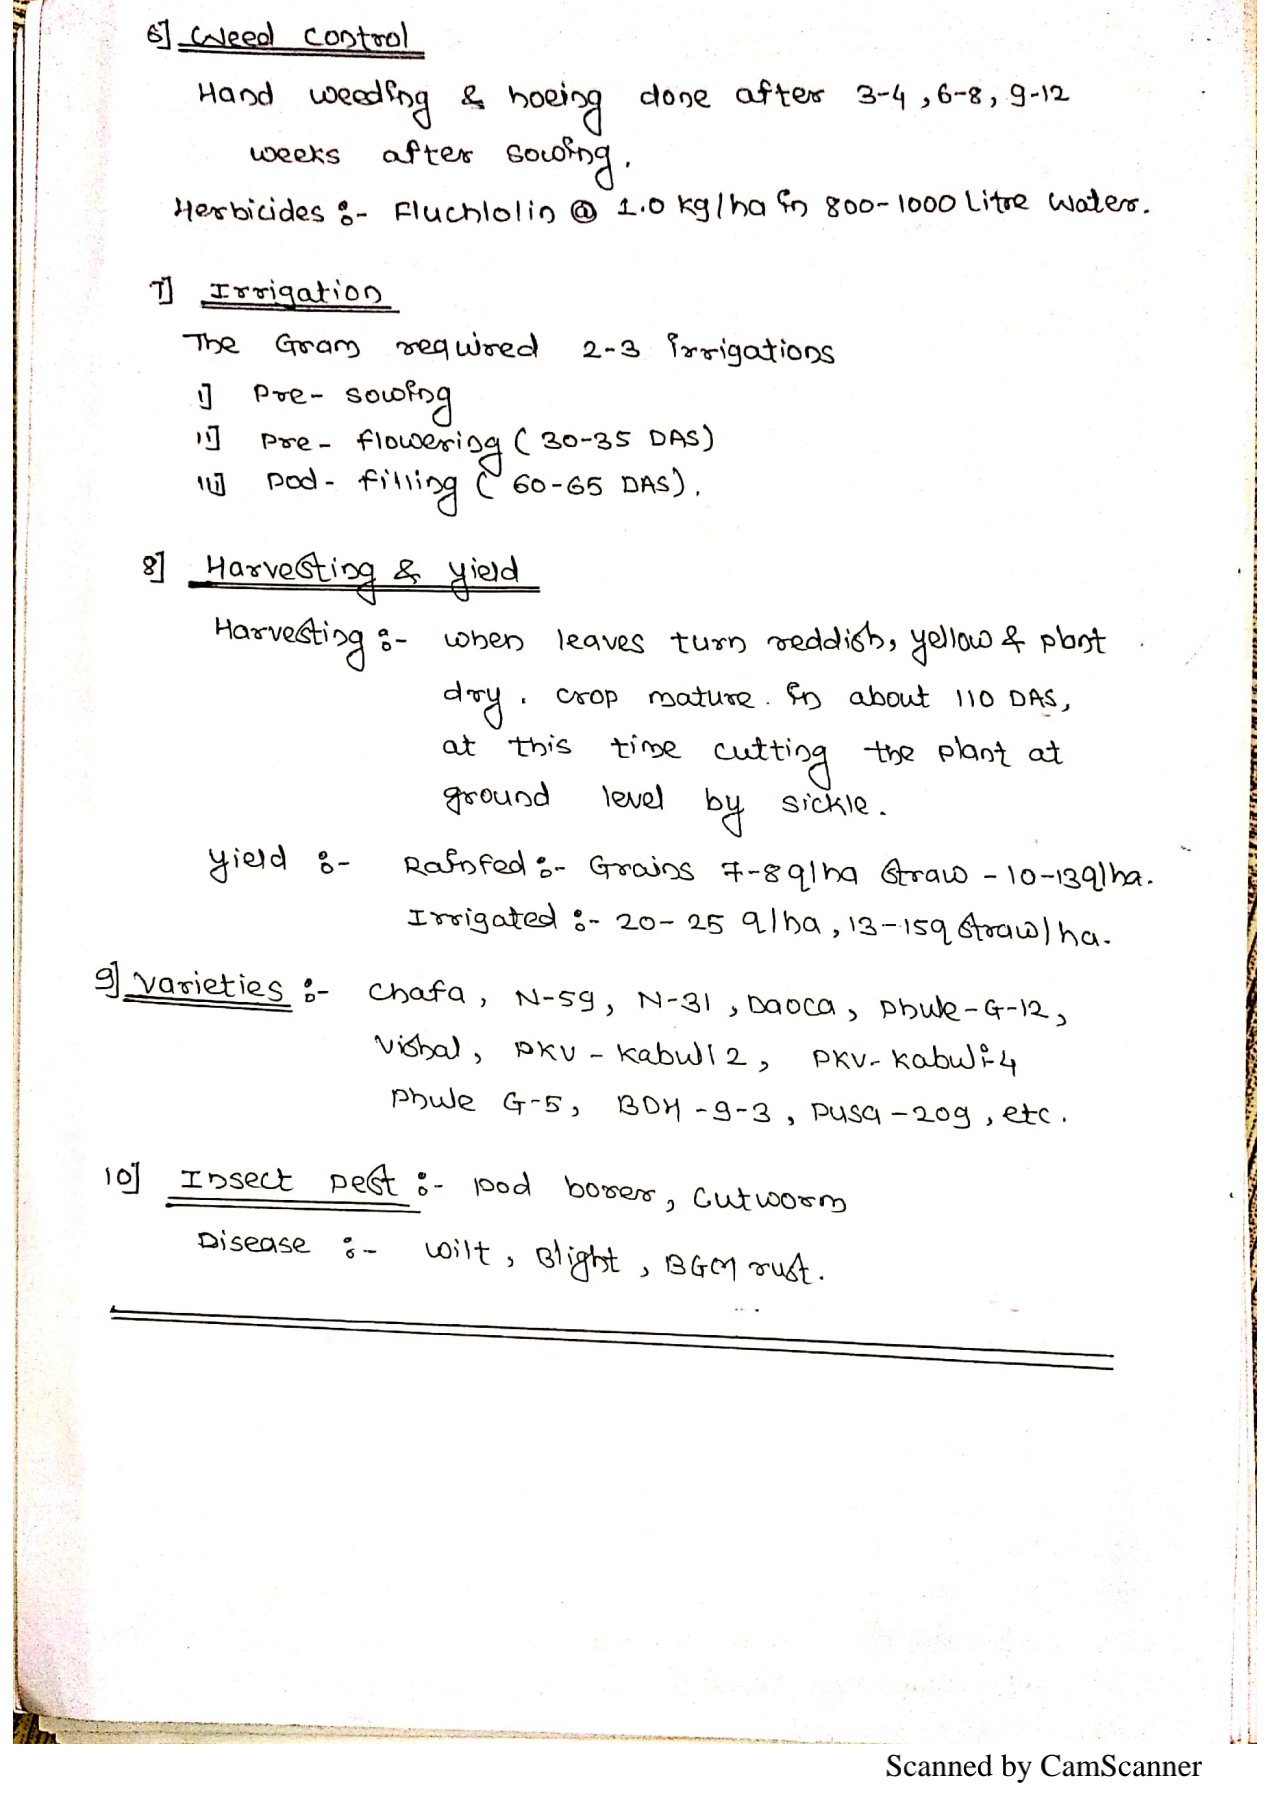 6] Weed control
Hand weeding & hoeing done after 3-4, 6-8, 9-12
weeks after sowing.
Herbicides :- Fluchlolin @ 1.0 kg/ha in 800-1000 Litre water.
7] Irrigation
The Gram required 2-3 irrigations
i] Pre-sowing
ii] Pre-flowering (30-35 DAS)
iii] Pod-filling (60-65 DAS).
8] Harvesting & yield
Harvesting :- when leaves turn reddish, yellow & plant
dry. crop mature in about 110 DAS,
at this time cutting the plant at
ground level by sickle.
Yield :- Rainfed :- Grains 7-8 q/ha Straw - 10-13q/ha.
Irrigated :- 20-25 q/ha, 13-15q straw/ha.
9] Varieties :- Chafa, N-59, N-31, Daoca, Phule-G-12,
Vishal, PKV-Kabuli 2, PKV-Kabuli-4
Phule G-5, BDH-9-3, Pusa-209, etc.
10] Insect pest :- pod borer, Cutworm
Disease :- Wilt, Blight, BGM rust.
Scanned by CamScanner